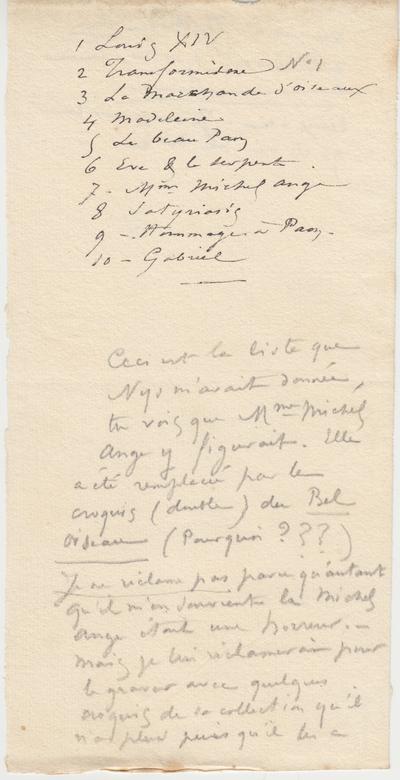 1 Louis XIV
2 Transformisme N° 1
3 La Marchande d'oiseaux
4 Madeleine
5 Le beau Paon
6 Eve & le serpent.
7 - Mme Michel ange
8 Satyriasis
9 - Hommage à Pan -
10 - Gabriel
Ceci est la liste que
Nys m'avait donnée,
tu vois que Mme Michel
Ange y figurait. Elle
a été remplacé par le
croquis (double) du Bel
oiseau (Pourquoi ???)
Je ne réclame pas parce qu'autant
qu'il m'en souvient la Michel
Ange était une horreur. -
Mais je lui réclamerai pour
le graver avec quelques
croquis de sa collection qu'il
n'a plus puisqu'il les a